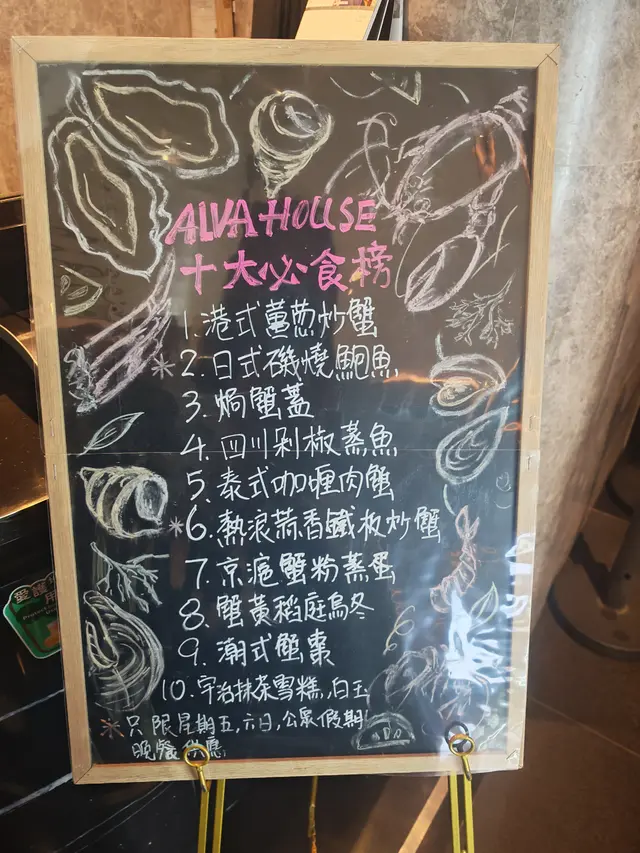 ALVA HOUSE
十大必食榜
1. 港式薑葱炒蟹
*2. 日式磯燒鮑魚
3. 焗蟹蓋
4. 四川剁椒蒸魚
5. 泰式咖喱肉蟹
*6. 熱浪蒜香鐵板炒蟹
7. 京滬蟹粉蒸蛋
8. 蟹黃稻庭烏冬
9. 潮式蟹棗
10. 宇治抹茶雪糕,白玉
*只限星期五,六日,公眾假期
晚餐供應
愛護